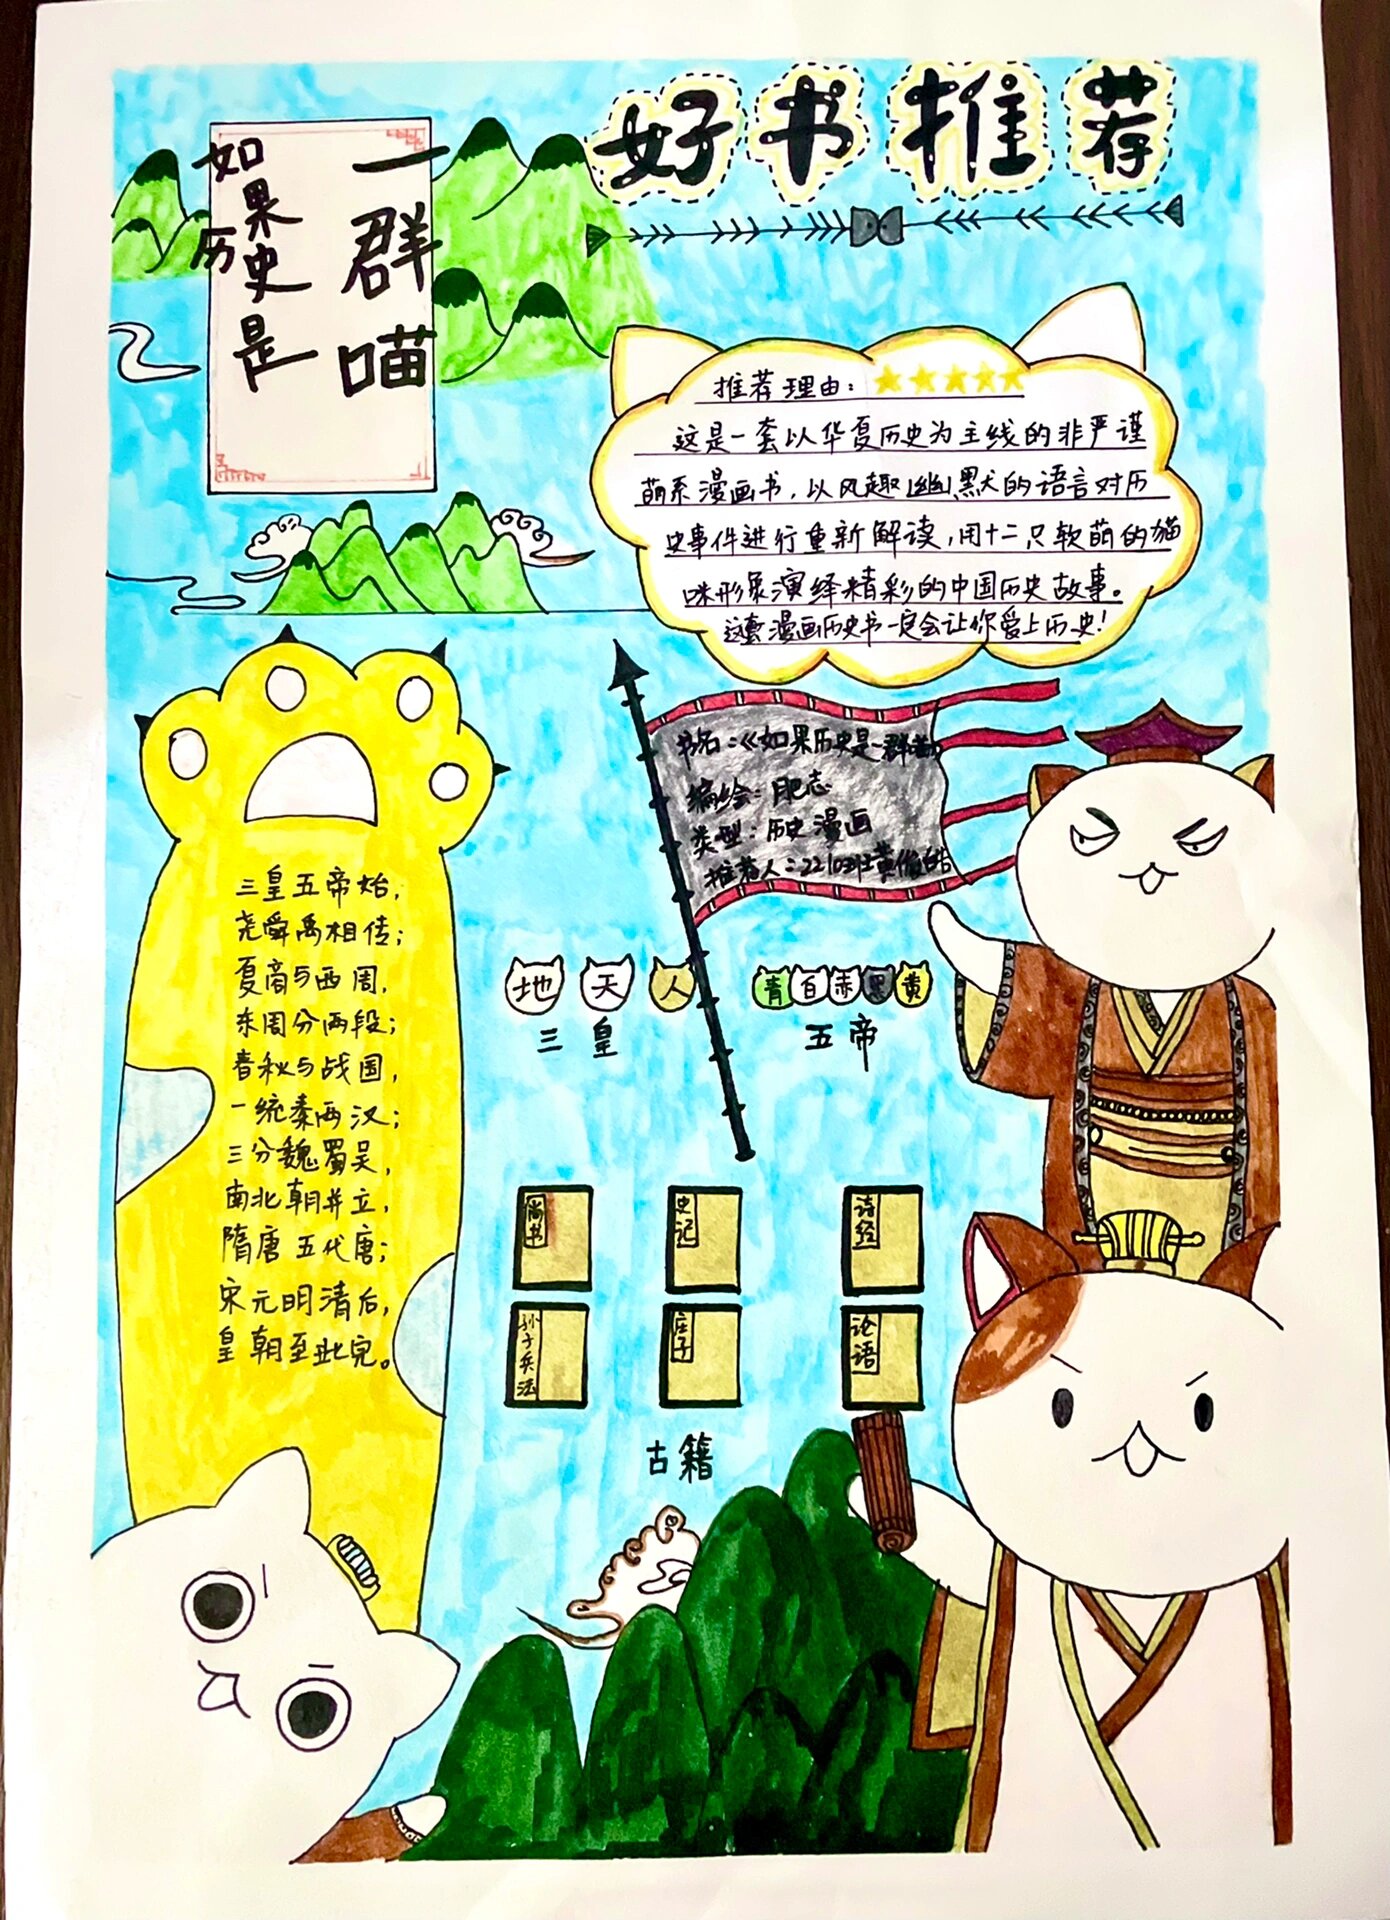 好书推荐
如果历史是
一群喵
推荐理由：
这是一套以华夏历史为主线的非严谨
萌系漫画书，以风趣幽默的语言对历
史事件进行重新解读，用十二只软萌的猫
咪形象演绎精彩的中国历史故事。
这套漫画历史书一定会让你爱上历史！
书名：《如果历史是一群喵》
编绘：肥志
类型：历史漫画
推荐人：2210班黄俊皓
三皇五帝始，
尧舜禹相传；
夏商与西周，
东周分两段；
春秋与战国，
一统秦两汉；
三分魏蜀吴，
南北朝并立，
隋唐五代唐；
宋元明清后，
皇朝至此完。
地 天 人
三皇
青 白 赤 黑 黄
五帝
尚书
史记
诗经
孙子兵法
庄子
论语
古籍